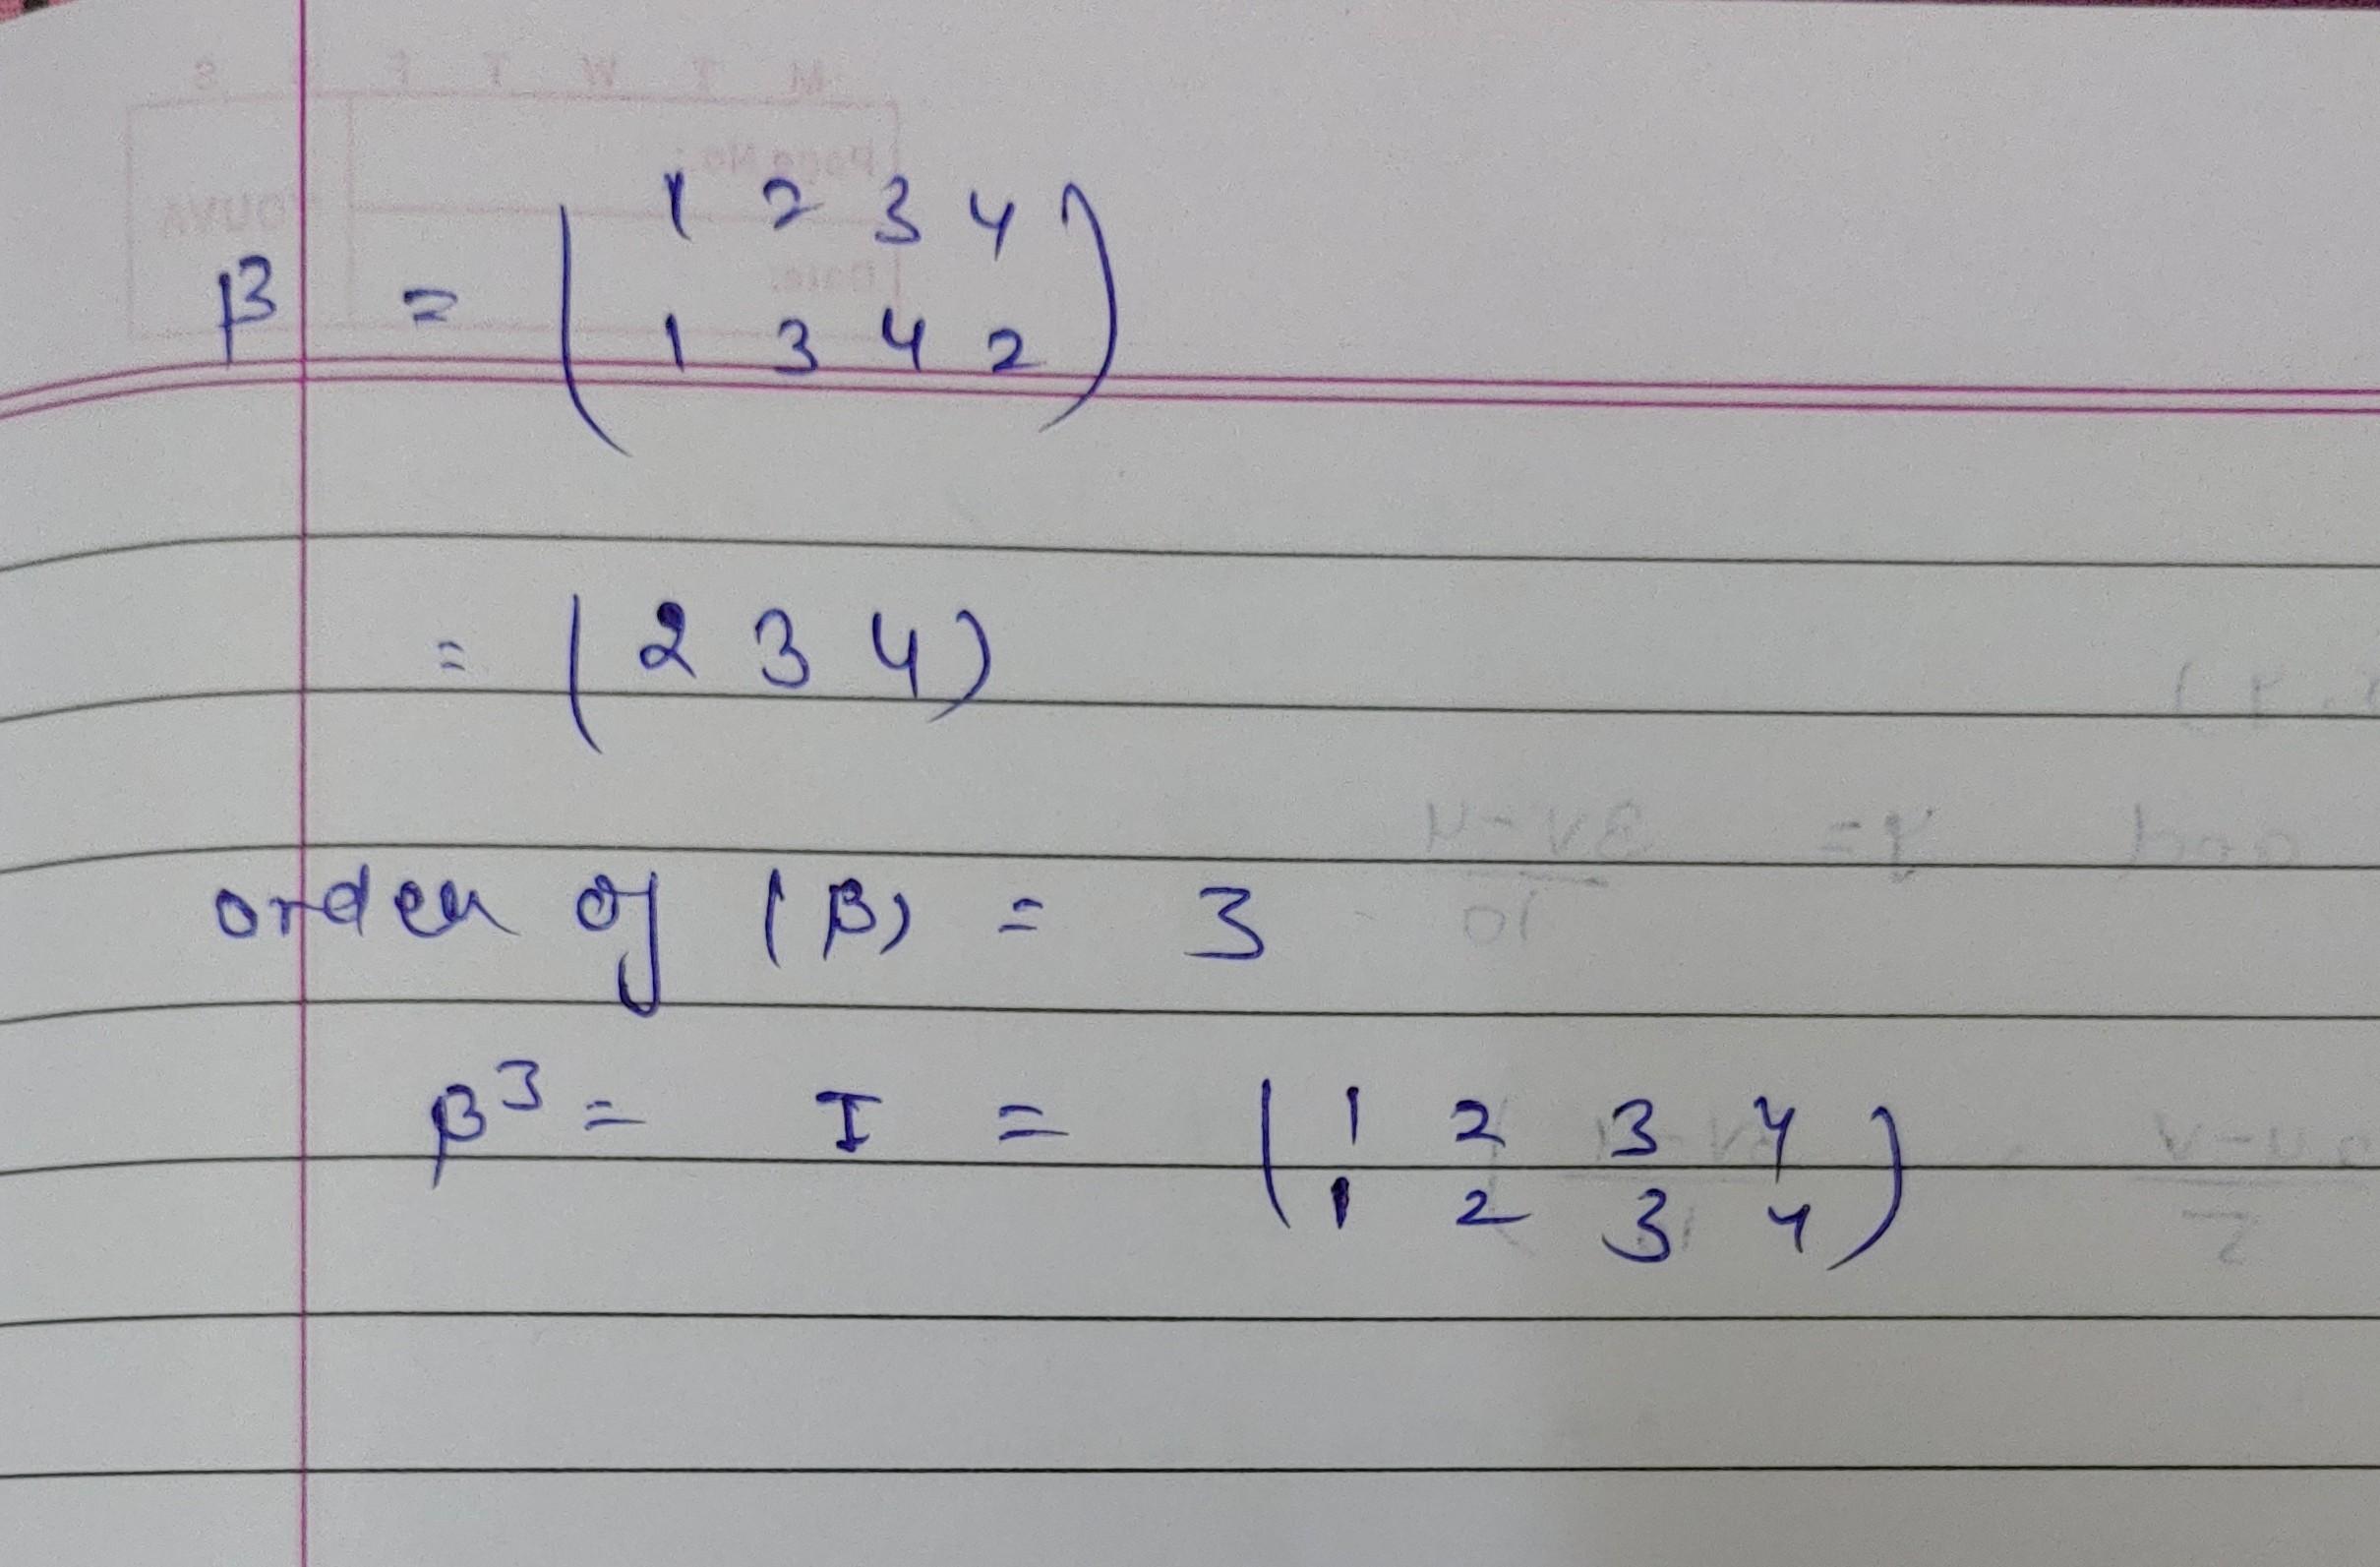 β = ( 1 2 3 4
1 3 4 2 )
= ( 2 3 4 )
order of (β) = 3
β³ = I = ( 1 2 3 4
1 2 3 4 )